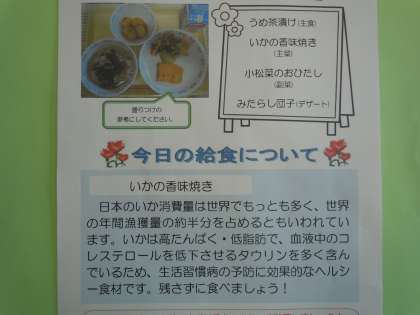 うめ茶漬け(主食)
いかの香味焼き
(主菜)
小松菜のおひたし
(副菜)
みたらし団子(デザート)
盛りつけの
参考にしてください。
今日の給食について
いかの香味焼き
日本のいか消費量は世界でもっとも多く、世界
の年間漁獲量の約半分を占めるともいわれてい
ます。いかは高たんぱく・低脂肪で、血液中のコ
レステロールを低下させるタウリンを多く含ん
でいるため、生活習慣病の予防に効果的なヘルシ
ー食材です。残さずに食べましょう!